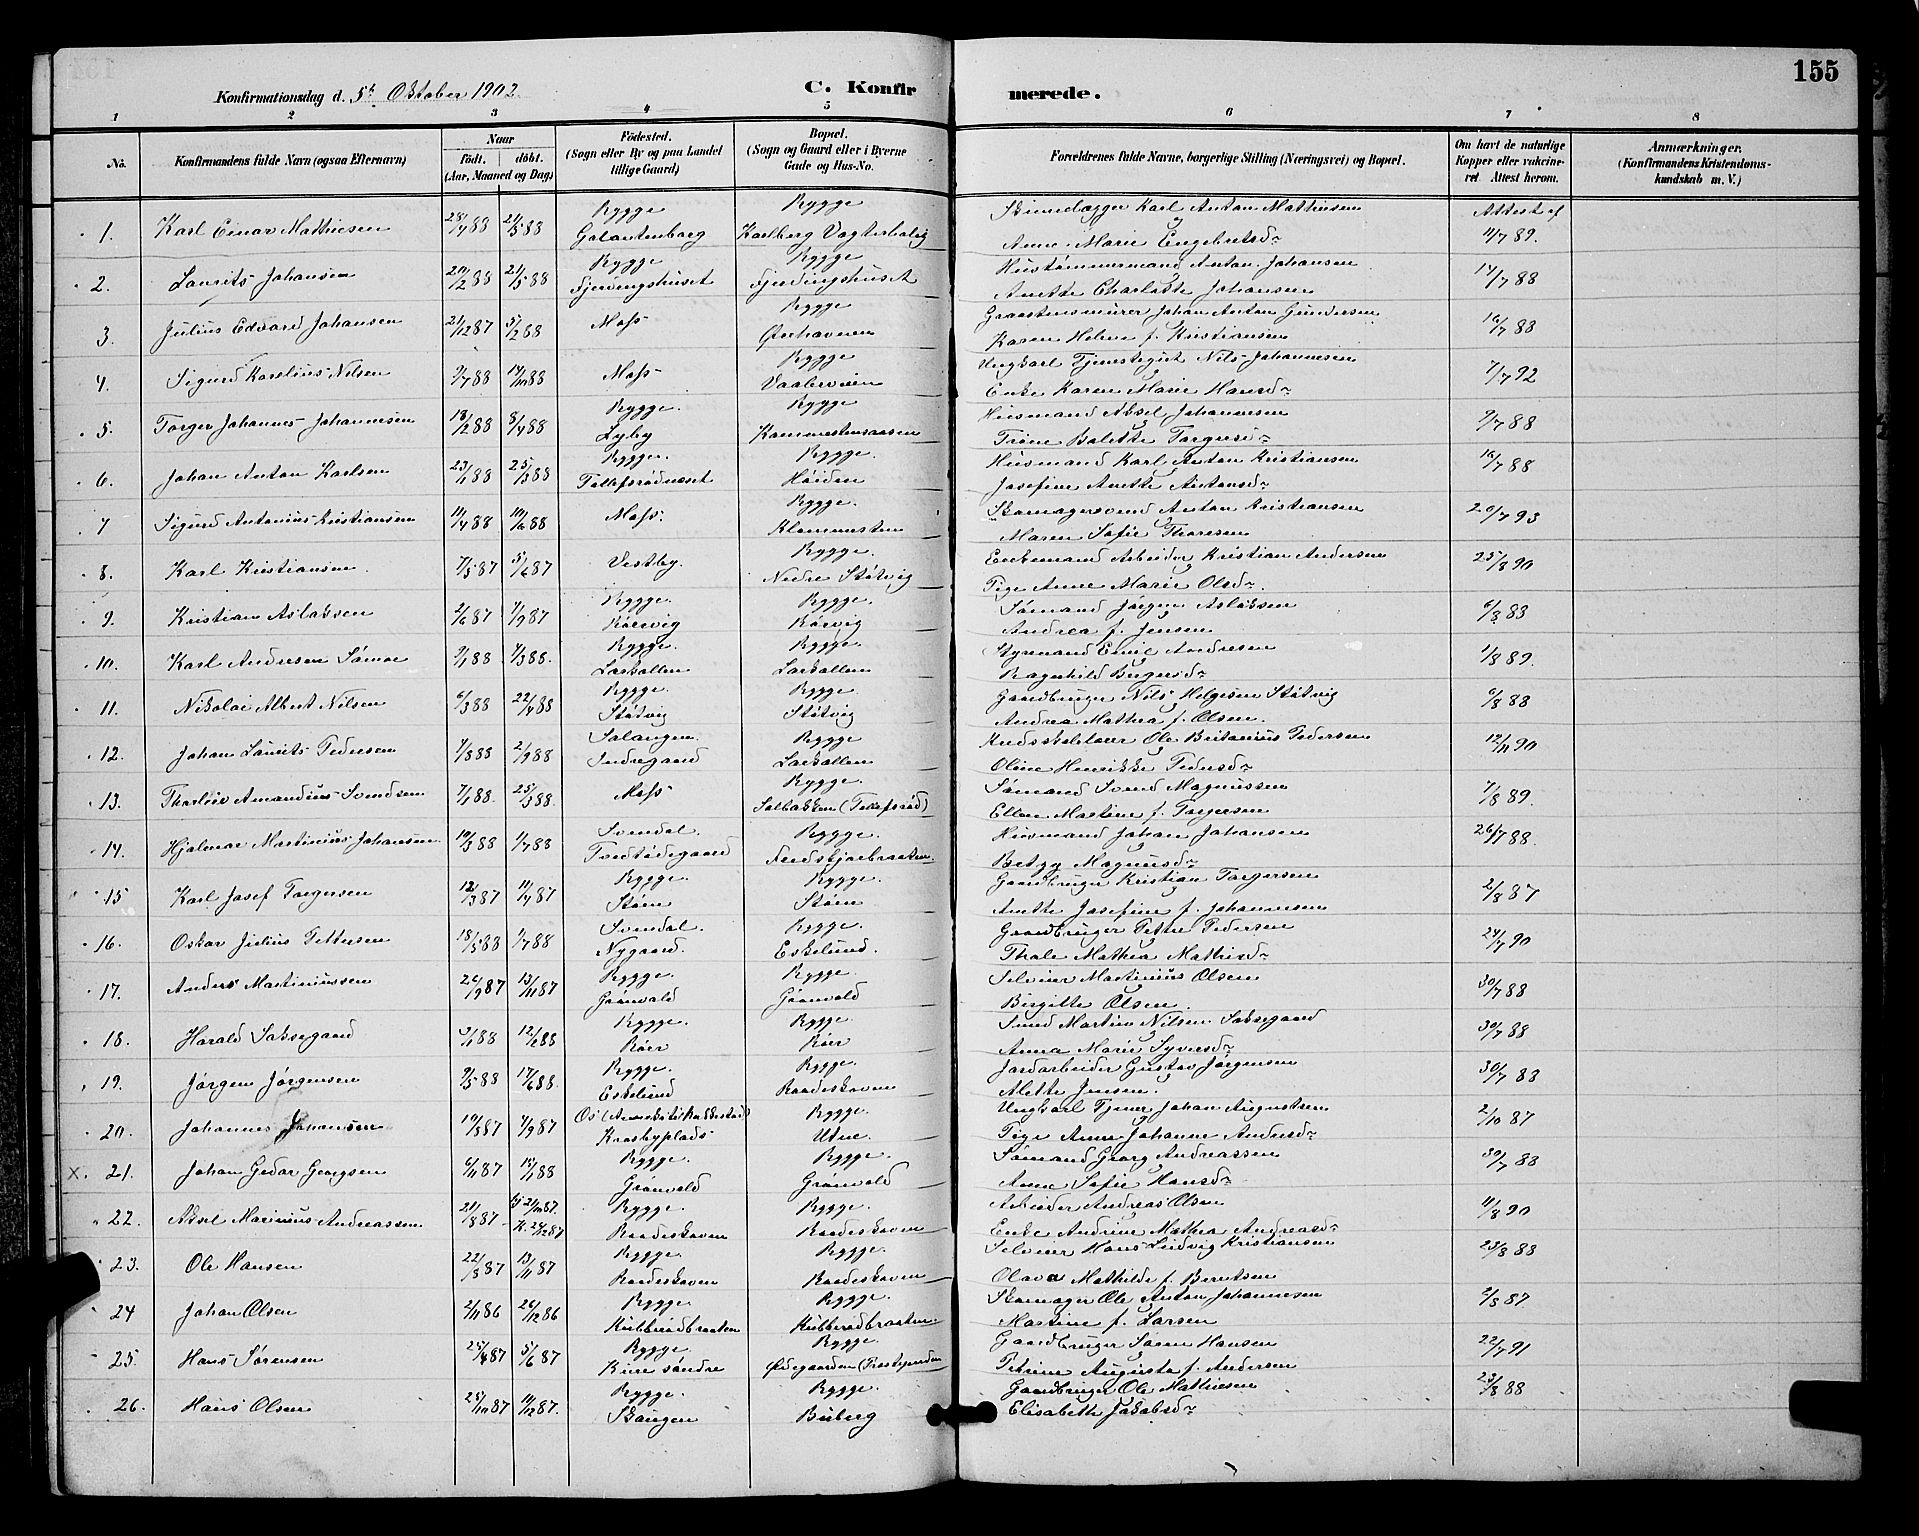 155
Konfirmationsdag d. 5te Oktober 1902. C. Konfir merede.
1 2 3 4 5 6 7 8
No. Konfirmandens fulde Navn (ogsaa Efternavn) Naar födt. döbt. (Aar, Maaned og Dag) Födested. (Sogn eller By og paa Landet tillige Gaard) Bopæl. (Sogn og Gaard eller i Byerne Gade og Hus-No. Forældrenes fulde Navne, borgerlige Stilling (Næringsvei) og Bopæl. Om havt de naturlige Kopper eller vakcineret Attest herom. Anmærkninger. (Konfirmandens Kristendomskundskab m. V.)
Rygge Rygge Karl Anton Mathiesen Attest af
1. Karl Einar Mathiesen 28/4 88 21/5 88 Karlberg Vagterbolig Anne Marie Engebretsd. 11/7 89.
Rygge Rygge Hustømmermand Anton Johansen
2. Laurits Johansen 20/2 88 21/5 88 Fjerdingshuset Fjerdingshuset Anette Charlotte Johansen 14/7 88
Rygge Johan Anton Gundersen
3. Julius Edvard Johansen 21/12 87 5/2 88 Moss Ørehavnen Karen Helene f. Kristiansen 16/7 88
Rygge Ungkarl Tjenestegut Nils Johannesen
4. Sigurd Karelius Nilsen 9/7 88 14/10 88 Moss Vaalerveien Enke Karen Marie Hansd. 7/7 92
Rygge. Rygge Husmand Aksel Johannesen
5. Torger Johannes Johannesen 18/2 88 8/4 88 Lyby Trine Balette Torgersd. 9/7 88
Rygge. Rygge. Husmand Karl Anton Kristiansen
6. Johan Anton Karlsen 23/1 88 25/3 88 Tollefsrødnæset Høiden Josefine Anette Antonsd. 16/7 88
Rygge. Skomagersvend Anton Kristiansen
7 Sigurd Antonius Kristiansen 11/4 88 10/6 88 Moss. Klommesten Maren Sofie Thoresen 20/7 93
Rygge. Enkemand Arbeider Kristian Andersen
8. Karl Kristiansen. 7/5 87 5/6 87 Vestby. Nedre Støtvig Pige Anne Marie Olsd. 25/8 90
Rygge. Rygge. Sømand Jørgen Aslaksen
9. Kristian Aslaksen 2/6 87 7/9 87 Rørvig Rørvig Andrea f. Jensen 6/8 88
Rygge. Rygge. Styrmand Emil Andresen
10. Karl Andresen Sømoe 9/1 88 4/3 88. Larkollen Larkollen Ragnhild Birgersd. 1/8 89.
Rygge Rygge. Gaardbruger Nils Helgesen Støtvig
11. Nikolai Albert Nilsen 6/3 88 22/4 88 Støtvig Støtvig Andrea Mathea f. Olsen. 6/8 88
Salangen. Rygge Ole Britanius Pedersen
12. Johan Laurits Pedersen 7/8 88 2/9 88 Indregaard Larkollen Oline Henrikke Pedersd. 12/11 90
Rygge. Sømand Svend Magnussen
13. Thorleiv Amandius Svendsen 7/1 88. 25/3 88. Moss Solbakken (Tollefsrød) Ellen Martine f. Torgersen 7/8 89.
Svendal. Rygge. Husmand Johan Johansen
14. Hjalmar Martinius Johansen 10/3 88 1/7 88 Betzy Magnusd. 26/7 88.
Rygge Rygge. Gaardbruger Kristian Torgersen
15 Karl Josef Torgersen 12/3 87 11/4 87 Støm Støm Anette Josefine f. Johannesen 2/8 87
Svendal. Rygge. Gaardbruger Petter Pedersen
16. Oskar Julius Pettersen 18/5 88 1/7 88 Nygaard. Eskelund. Thale Mathea Mathisd. 24/7 90
Rygge. Rygge. Selveier Martinius Olsen
17. Anders Martiniussen 26/9 87 13/11 87 Grønvold Grønvold Birgitte Olsen. 30/7 88
Rygge. Rygge. Smed Martin Nilsen Saksegaard
18. Harald Saksegaard 3/1 88 12/2 88 Røer Røer Anna Marie Syversd. 30/7 88
Rygge. Rygge. Jordarbeider Gustav Jørgensen
19. Jørgen Jørgensen 9/5 88 17/6 88. Eskelund Raadeskoven Alette Jensen. 30/7 88
Rygge. Ungkarl Tjener Johan Augustsen
20. Johannes Johansen 19/8 87 4/9 87 Krosbyplads Utne. Pige Anna Johanne Andersd. 2/10 87
Rygge. Rygge. Sømand Georg Andreassen
X. 21. Johan Gedar Georgsen 6/11 87 15/1 88 Grønvold Grønvold Anne Sofie Hansd. 30/7 88
Rygge. Rygge. Arbeider Andreas Olsen
22. Aksel Marinius Andreassen 21/8 87 Hj 21/10 87. K. 26/12 87 Raadeskoven Raadeskoven Enke Andrine Mathea Andreasd. 11/8 90
Rygge Rygge. Selveier Hans Ludvig Kristiansen
23. Ole Hansen 22/8 87 13/11 87 Raadeskoven Raadeskoven Olava Mathilde f. Berntsen 23/8 88
Rygge. Rygge. Skomager Ole Anton Johannesen
24 Johan Olsen 2/11 86 26/12 86 Kubberødbraaten Kubberødbraaten. Martine f. Larsen 6/8 87
Rygge. Rygge. Gaardbruger Søren Hansen
25. Hans Sørensen 25/4 87 5/6 87 Bure søndre Petrine Augusta f. Andersen 22/7 91
Rygge. Rygge. Gaardbruger Ole Mathiesen
26. Hans Olsen 25/10 87 11/12 87. Skaugen Buberg Elisabeth Jakobsd. 23/8 88